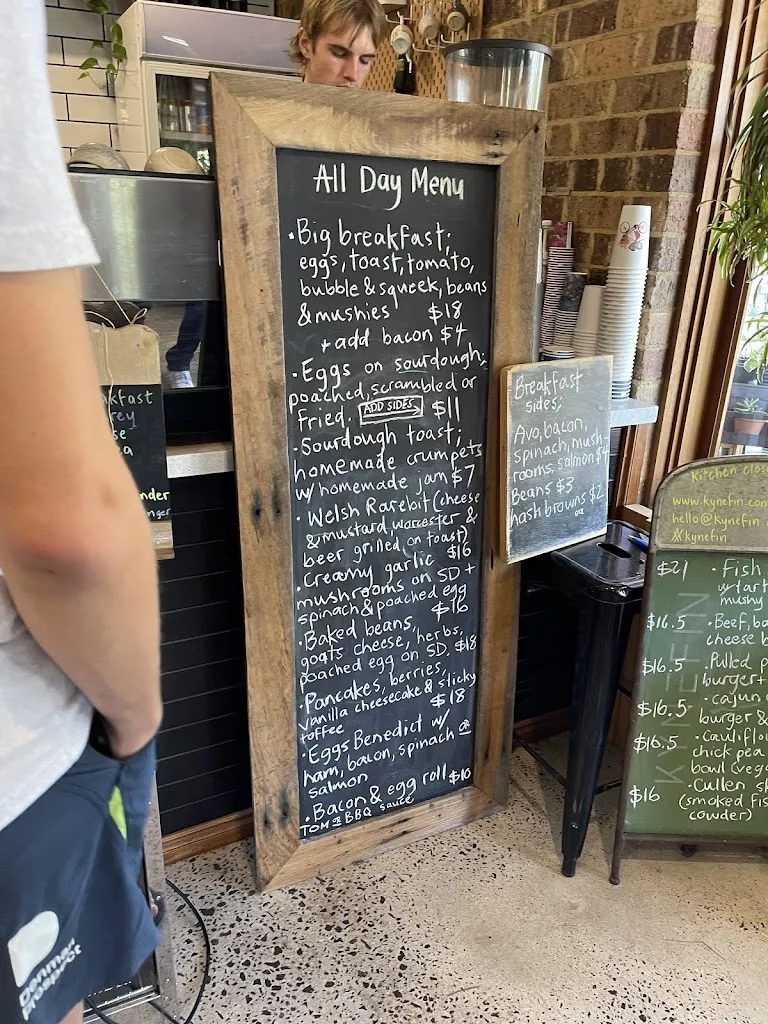 All Day Menu
• Big breakfast;
eggs, toast, tomato,
bubble & squeek, beans
& mushies $18
+ add bacon $4
• Eggs on sourdough;
poached, scrambled or
fried. ADD SIDES $11
• Sourdough toast;
homemade crumpets
w/ homemade jam $7
• Welsh Rarebit (cheese
& mustard, worcester &
beer grilled, on toast)
$16
• Creamy garlic
mushrooms on SD +
spinach & poached egg
$16
• Baked beans,
goats cheese, herbs,
poached egg on SD. $18
• Pancakes, berries,
vanilla cheesecake & sticky
toffee $18
• Eggs Benedict w/
ham, bacon, spinach or
salmon
• Bacon & egg roll $10
TOM or BBQ sauce
Breakfast
sides;
Avo, bacon,
spinach, mush-
rooms. salmon $4
Beans $3
hash browns $2
ea
Kitchen close
www.kynefin.com
hello@kynefin.c
kynefin
$21 • Fish
w/tart
mushy
$16.5 • Beef, ba
cheese b
$16.5 • Pulled p
burger +
$16.5 • cajun c
burger &
$16.5 • cauliflow
chick pea
bowl (veg
$16 • Cullen sk
(smoked fis
cowder)
KYNEFIN
kfast
rey
se
a
nder
nger
Denman
Prospect